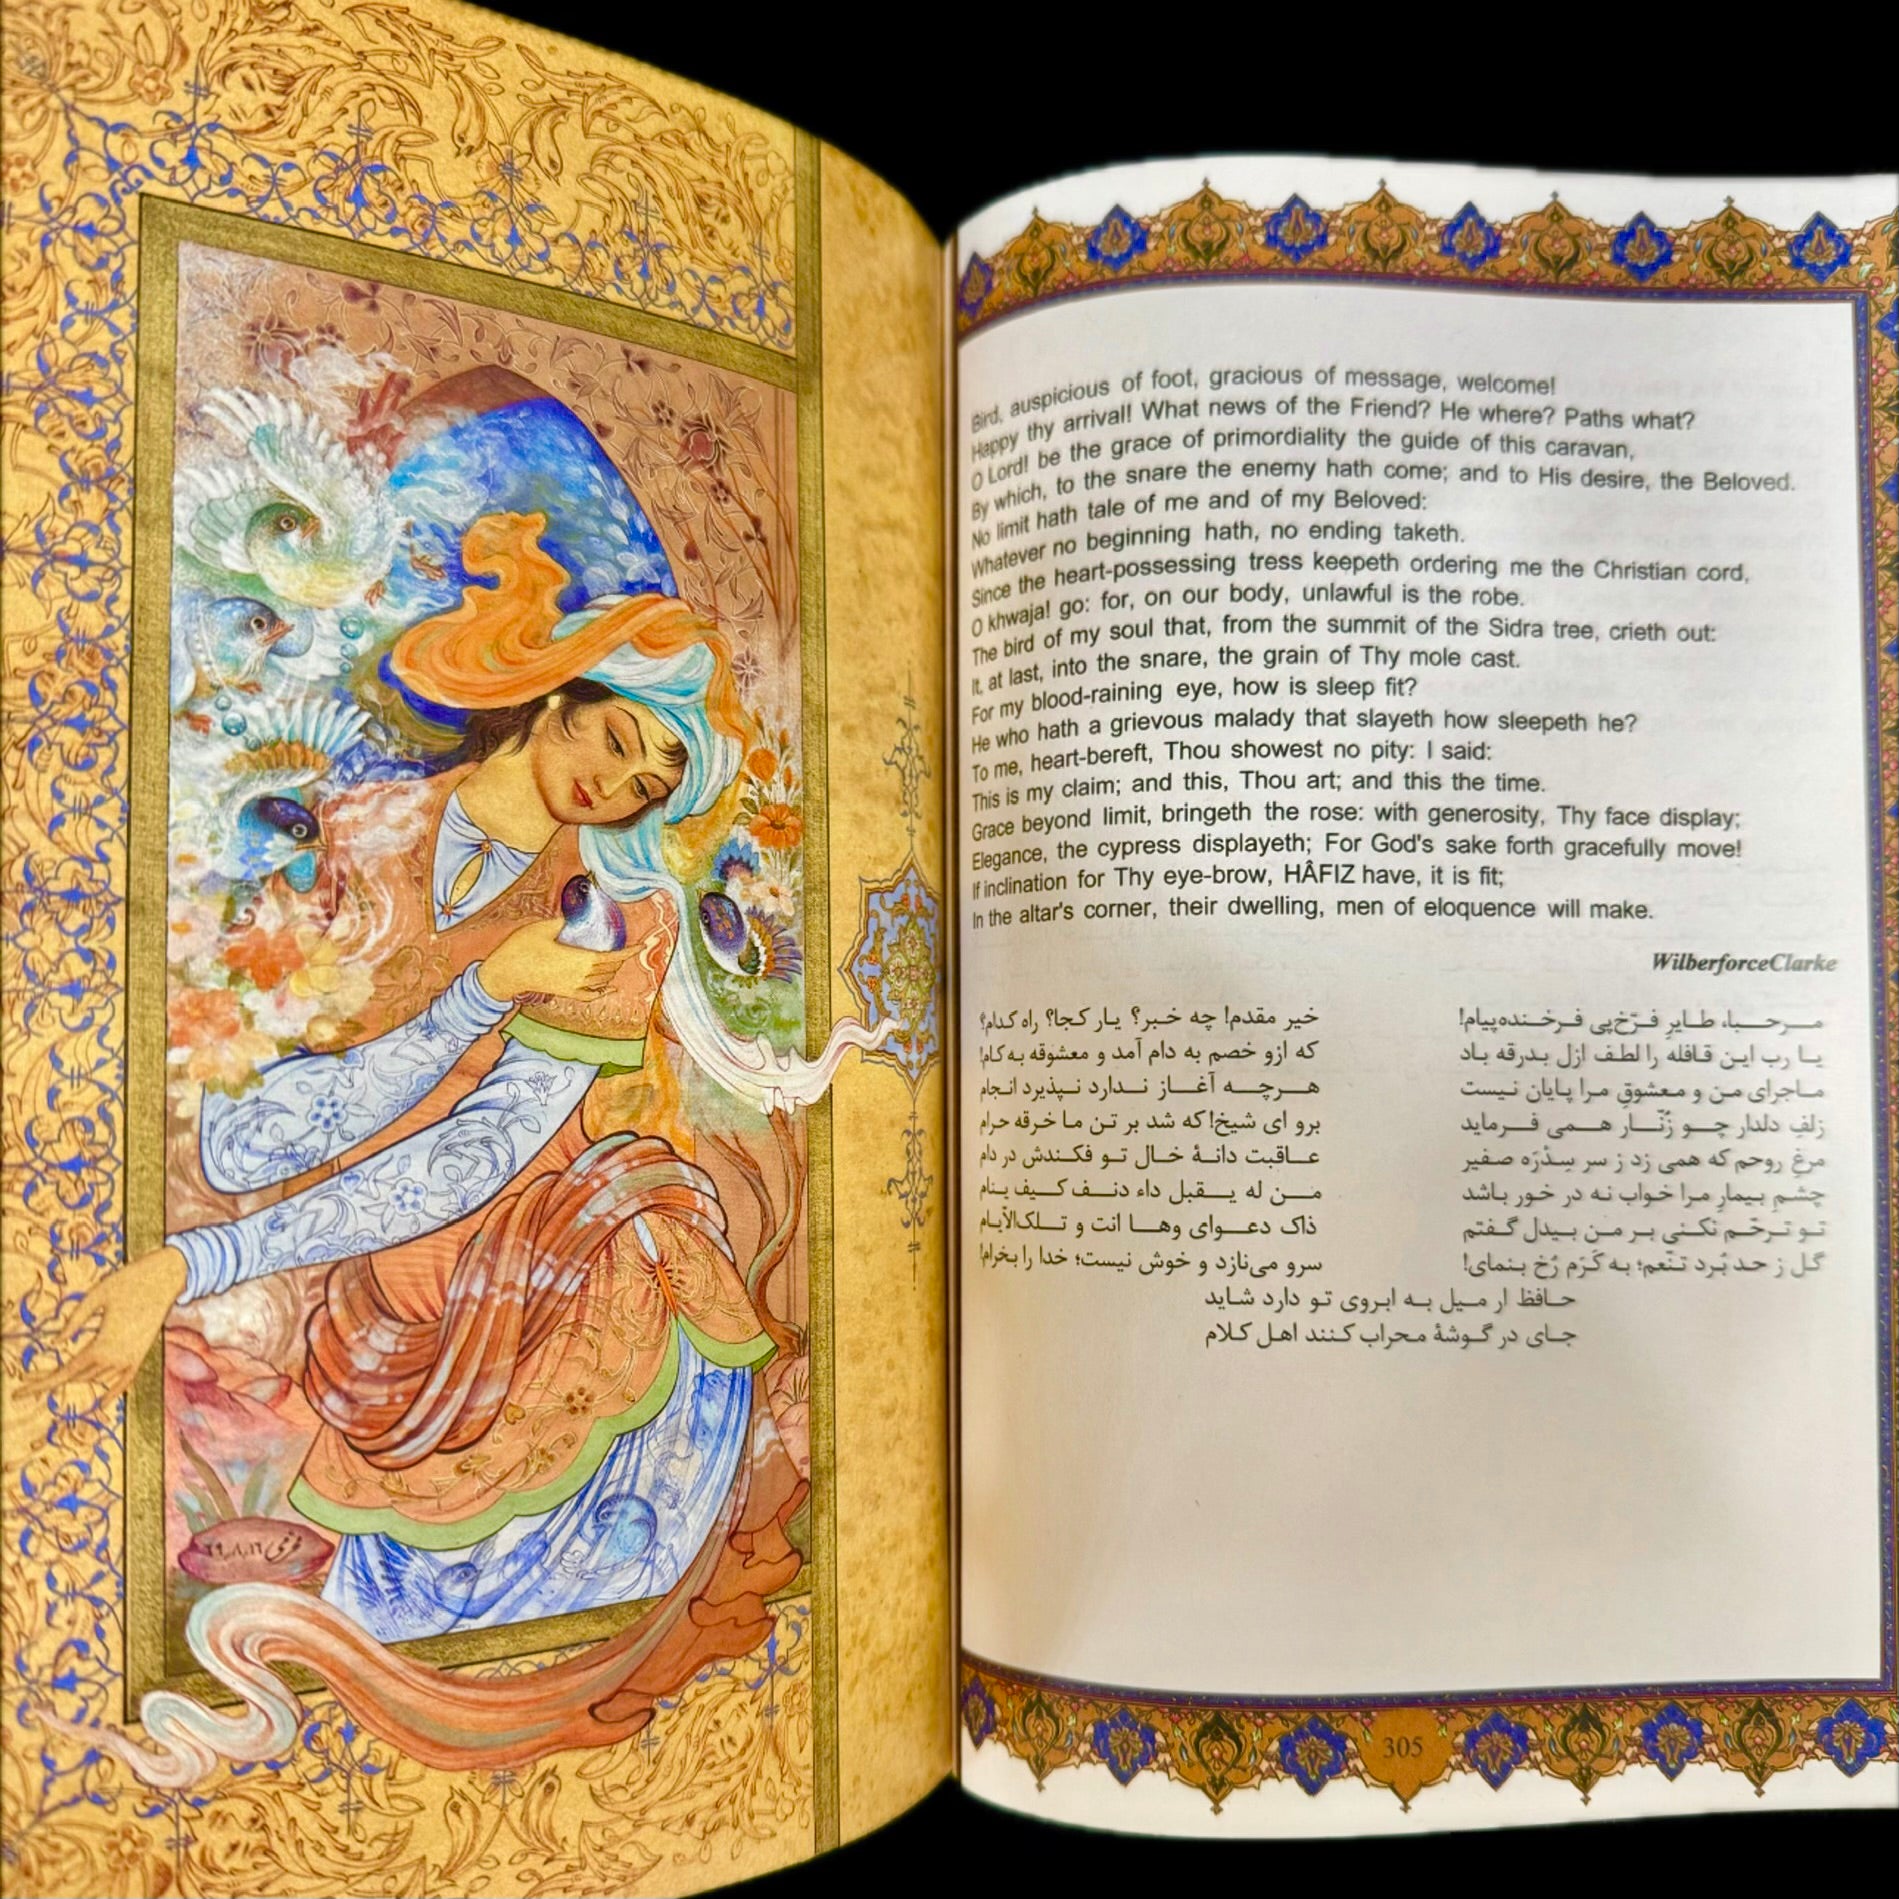 Bird, auspicious of foot, gracious of message, welcome!
Happy thy arrival! What news of the Friend? He where? Paths what?
O Lord! be the grace of primordiality the guide of this caravan,
By which, to the snare the enemy hath come; and to His desire, the Beloved.
No limit hath tale of me and of my Beloved:
Whatever no beginning hath, no ending taketh.
Since the heart-possessing tress keepeth ordering me the Christian cord,
O khwaja! go: for, on our body, unlawful is the robe.
The bird of my soul that, from the summit of the Sidra tree, crieth out:
It, at last, into the snare, the grain of Thy mole cast.
For my blood-raining eye, how is sleep fit?
He who hath a grievous malady that slayeth how sleepeth he?
To me, heart-bereft, Thou showest no pity: I said:
This is my claim; and this, Thou art; and this the time.
Grace beyond limit, bringeth the rose: with generosity, Thy face display;
Elegance, the cypress displayeth; For God's sake forth gracefully move!
If inclination for Thy eye-brow, HÂFIZ have, it is fit;
In the altar's corner, their dwelling, men of eloquence will make.
WilberforceClarke
مرحبا، طایرِ فرّخ‌پی فرخنده‌پیام! خیر مقدم! چه خبر؟ یار کجا؟ راه کدام؟
یا رب این قافله را لطف ازل بدرقه باد که ازو خصم به دام آمد و معشوقه به کام!
ماجرای من و معشوقِ مرا پایان نیست هرچه آغاز ندارد نپذیرد انجام
زلفِ دلدار چو زُنّار همی فرماید برو ای شیخ! که شد بر تن ما خرقه حرام
مرغِ روحم که همی زد ز سر سِدْرَه صفیر عاقبت دانهٔ خال تو فکندش در دام
چشمِ بیمارِ مرا خواب نه در خور باشد من له یقبل داء دنف کیف ینام
تو ترحّم نکنی بر من بیدل گفتم ذاک دعوای وها انت و تلک‌الایام
گل ز حد بُرد تنّعم؛ به کَرَم رُخ بنمای! سرو می‌نازد و خوش نیست؛ خدا را بخرام!
حافظ ار میل به ابروی تو دارد شاید
جای در گوشهٔ محراب کنند اهل کلام
305